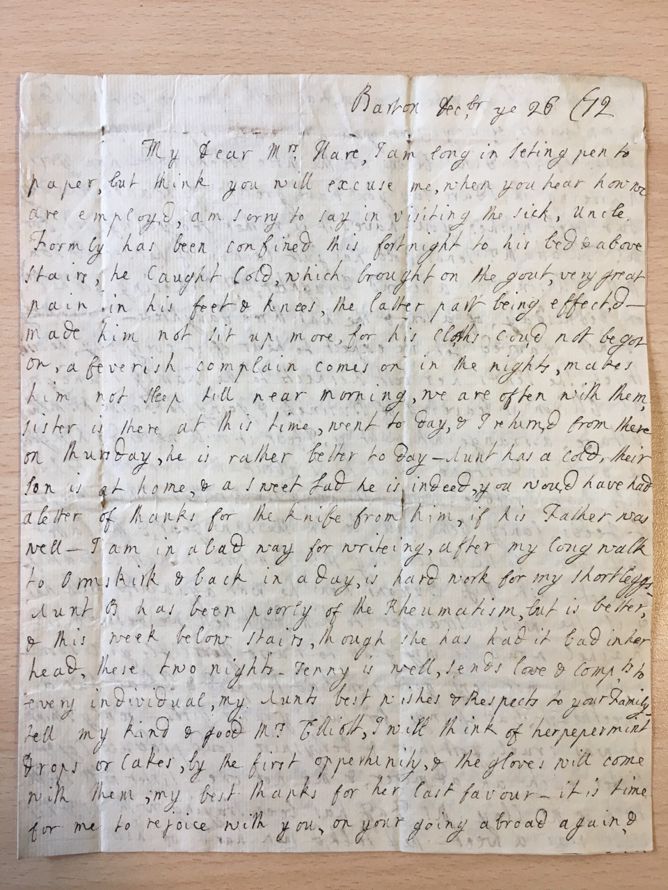 Barton Decbr ye 26 (72
My Dear Mrs Hare, I am long in seting pen to
paper, but think you will excuse me, when you hear how we
are employd, am sorry to say in visiting the sick, Uncle
Formby has been confined this fortnight to his bed & above
Stairs, he Caught Cold, which brought on the gout, very great
pain in his feet & knees, the latter part being effectd—
made him not sit up more, for his Cloths coud not be got
on, a feverish complain comes on in the nights, makes
him not sleep till near morning, we are often with them,
sister is there at this time, went to day, & I returnd from there
on thursday, he is rather better to day— Aunt has a Cold, their
Son is at home, & a sweet Lad he is indeed, you woud have had
a letter of thanks for the knife from him, if his Father was
well— I am in a bad way for writeing, after my long walk
to Ormskirk & back in a day, is hard work for my short leggs—
Aunt B has been poorly of the Rheumatism, but is better,
& this week below stairs, though she has had it bad in her
head, these two nights— Jenny is well, sends love & Compts to
every individual, my Aunts best wishes & Respects to your Family,
tell my kind & good Mrs Elliott, I will think of her pepermint
drops or Cakes, by the first oppertunity, & the gloves will come
with them, my best thanks for her last favour— it is time
for me to rejoice with you, on your going abroad again, &